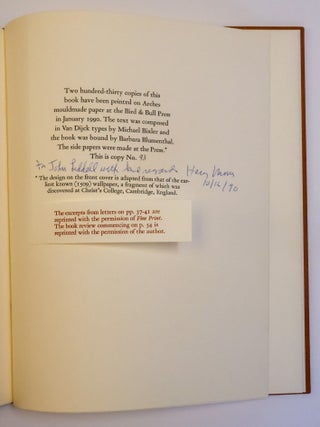 Two hundred-thirty copies of this
book have been printed on Arches
mouldmade paper at the Bird & Bull Press
in January 1990. The text was composed
in Van Dijck types by Michael Bixler and
the book was bound by Barbara Blumenthal.
The side papers were made at the Press.*
This is copy No. 93
For John with best regards Henry Morris
10/16/90
* The design on the front cover is adapted from that of the ear-
liest known (1509) wallpaper, a fragment of which was
discovered at Christ's College, Cambridge, England.
The excerpts from letters on pp. 37-41 are
reprinted with the permission of Fine Print.
The book review commencing on p. 54 is
reprinted with the permission of the author.